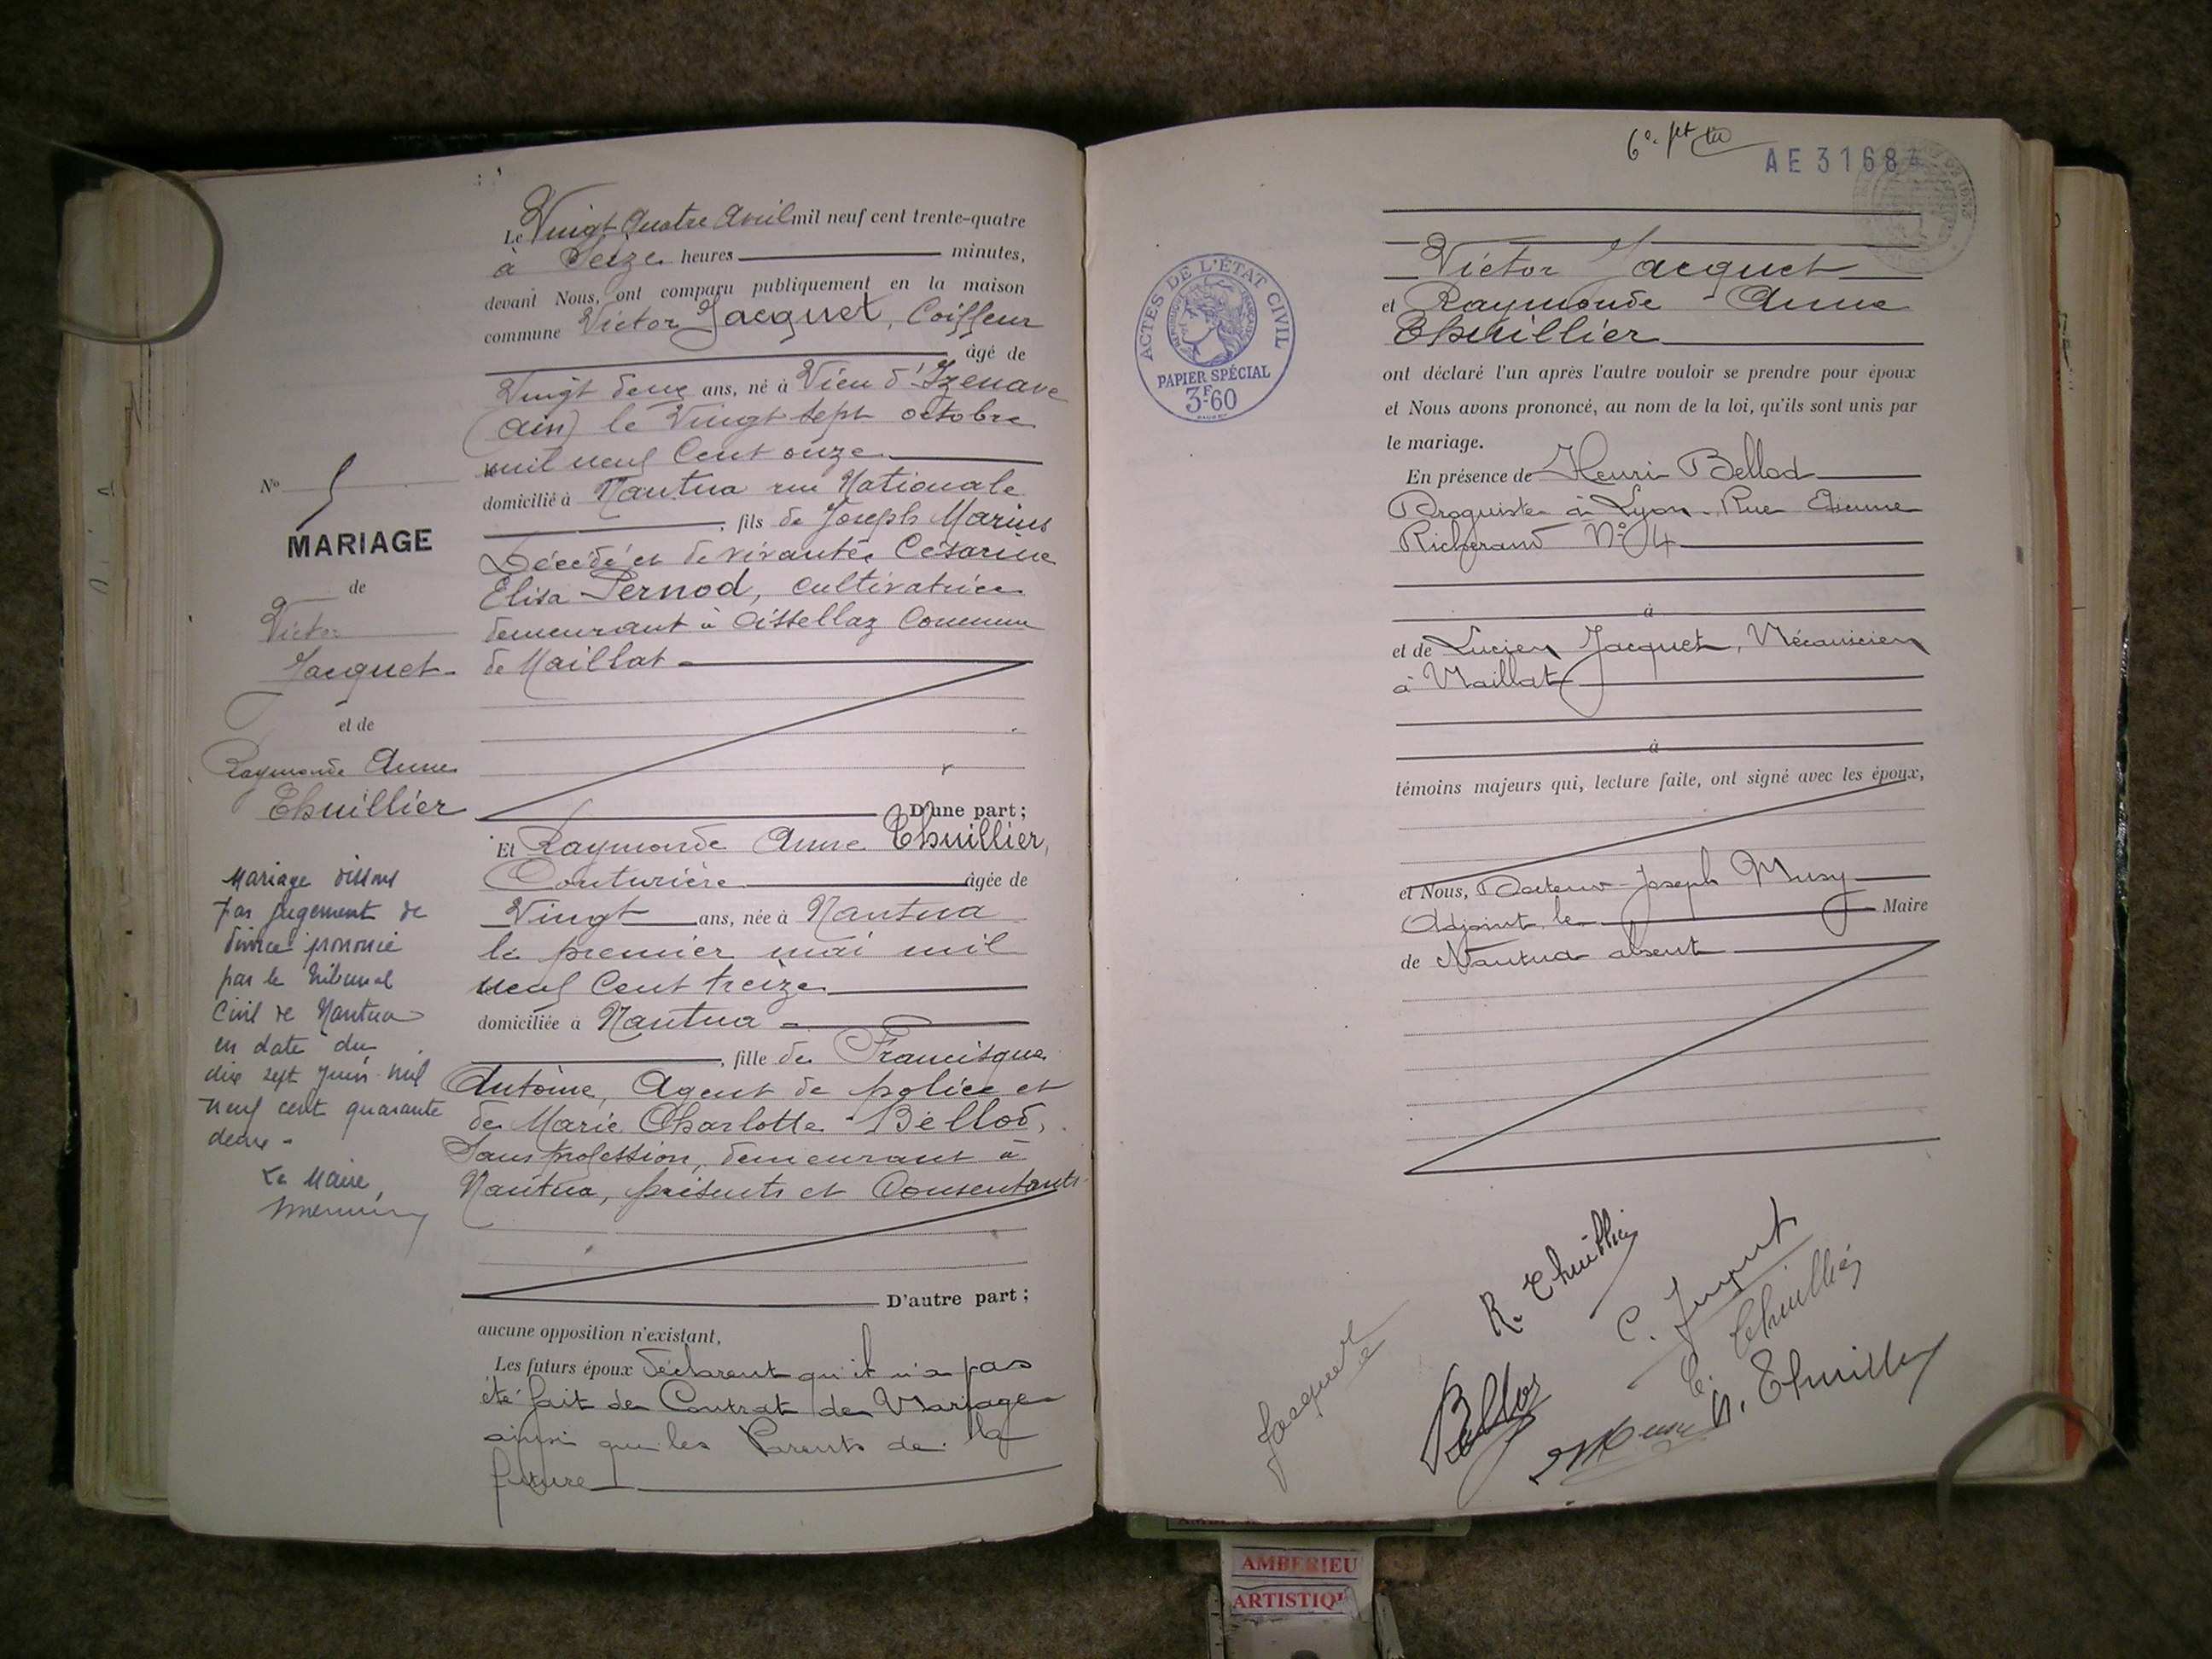 N° 5
MARIAGE
de
Victor
Jacquet
et de
Raymonde Anne
Thuillier
Mariage dissous
par jugement de
divorce prononcé
par le tribunal
Civil de Nantua
en date du
dix sept juin mil
neuf cent quarante
deux -
Le Maire,
Le Vingt quatre Avril mil neuf cent trente-quatre
à Seize heures minutes,
devant Nous, ont comparu publiquement en la maison
commune Victor Jacquet, Coiffeur
âgé de
Vingt deux ans, né à Vieu d'Izenave
(Ain) le Vingt sept octobre
mil neuf Cent onze
domicilié à Nantua rue Nationale
, fils de Joseph Marius
Décédé et de vivante Césarine
Elisa Pernod, cultivatrice
demeurant à Cissellaz Commune
de Maillat -
D'une part ;
Et Raymonde Anne Thuillier,
Couturière âgée de
Vingt ans, née à Nantua
le premier mai mil
neuf Cent treize
domiciliée à Nantua -
, fille de Francisque
Antoine, Agent de police et
de Marie Charlotte Bellod,
Sans profession, demeurant à
Nantua, présents et Consentants
D'autre part ;
aucune opposition n'existant,
Les futurs époux déclarent qu'il n'a pas
été fait de Contrat de Mariage
ainsi que les Parents de la
future
6e
AE 3168
ACTES DE L'ÉTAT CIVIL
PAPIER SPÉCIAL
3F60
Victor Jacquet
et Raymonde - Anne
Thuillier
ont déclaré l'un après l'autre vouloir se prendre pour époux
et Nous avons prononcé, au nom de la loi, qu'ils sont unis par
le mariage.
En présence de Henri Bellod
Droguiste à Lyon - Rue Etienne
Richerand N° 4
à
et de Lucien Jacquet, Mécanicien
à Maillat
à
témoins majeurs qui, lecture faite, ont signé avec les époux,
et Nous, Docteur Joseph Musy
Adjoint, le Maire
de Nantua absent
R. Thuillier
C. Jacquet
C. Thuillier
Jacquet
Bellod
Thuillier
AMBERIEU
ARTISTIQ